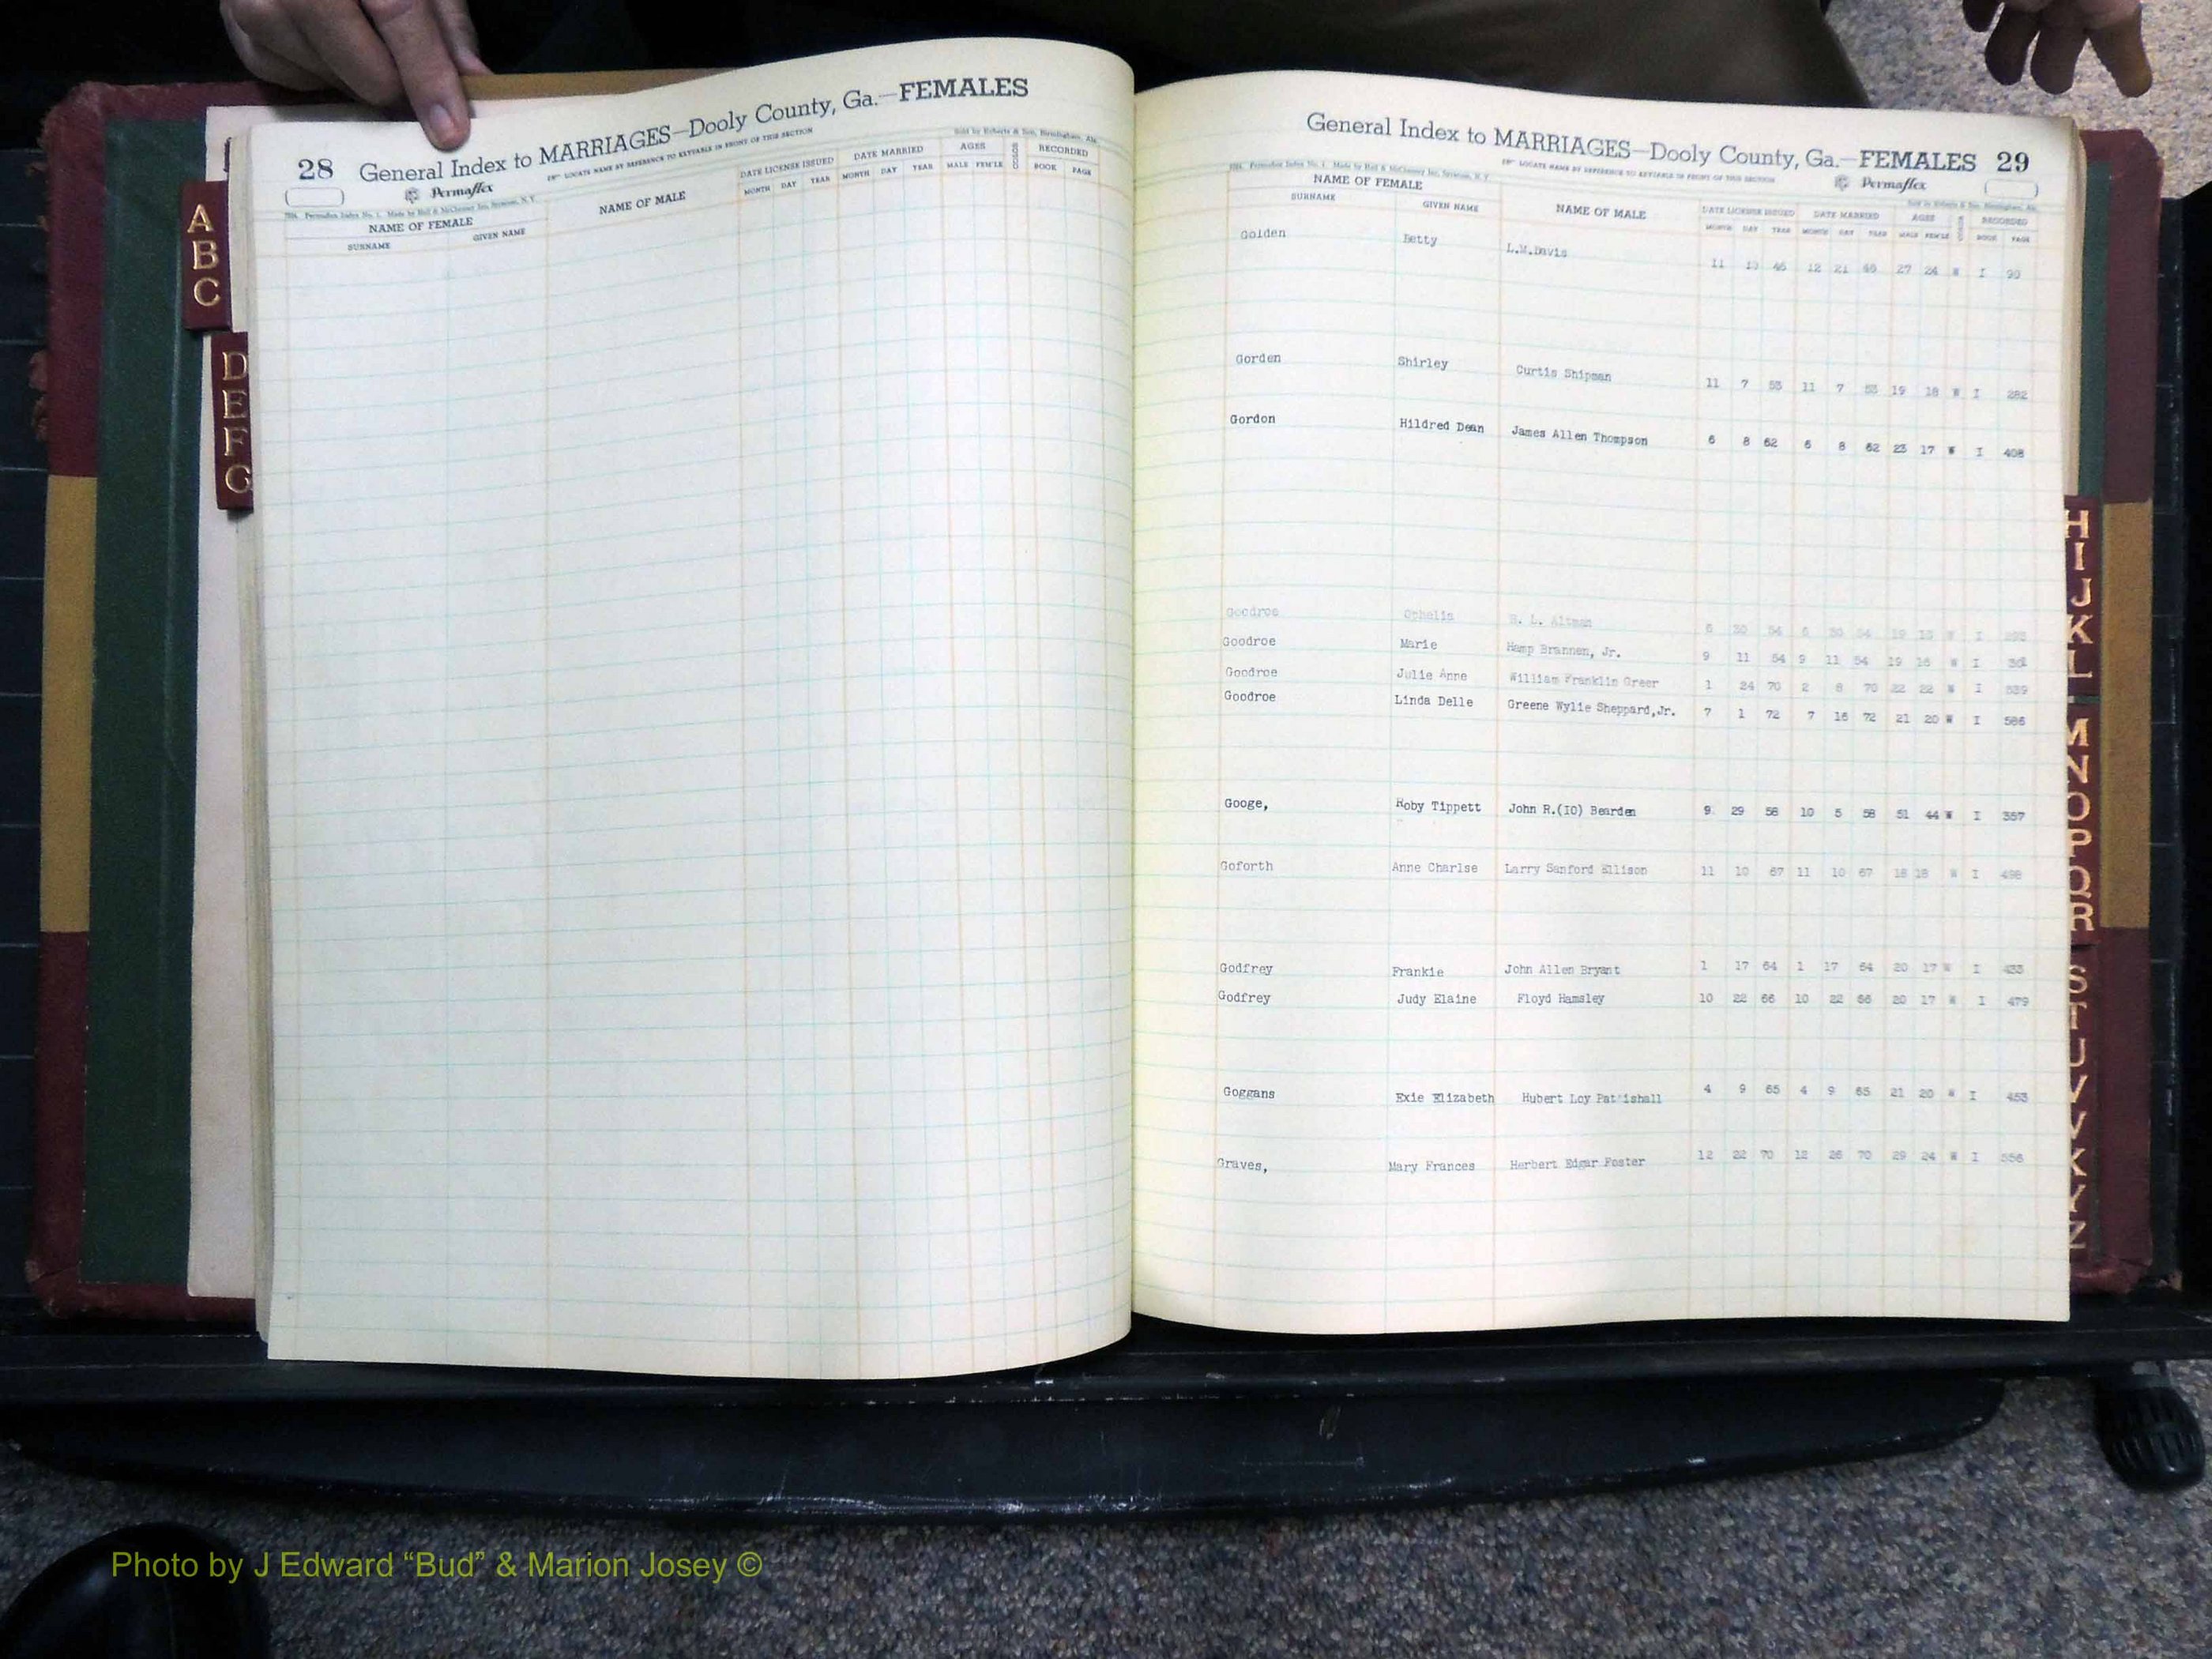 28 General Index to MARRIAGES—Dooly County, Ga.—FEMALES
Permaflex
LOCATE NAME BY REFERENCE TO KEYTABLE IN FRONT OF THIS SECTION
Sold by Roberts & Son, Birmingham, Ala.
NAME OF FEMALE
SURNAME GIVEN NAME
NAME OF MALE
DATE LICENSE ISSUED DATE MARRIED AGES COLOR RECORDED
MONTH DAY YEAR MONTH DAY YEAR MALE FEM'LE BOOK PAGE
A
B
C
D
E
F
G
General Index to MARRIAGES—Dooly County, Ga.—FEMALES 29
LOCATE NAME BY REFERENCE TO KEYTABLE IN FRONT OF THIS SECTION
Permaflex
NAME OF FEMALE
SURNAME GIVEN NAME
NAME OF MALE
DATE LICENSE ISSUED DATE MARRIED AGES COLOR RECORDED
MONTH DAY YEAR MONTH DAY YEAR MALE FEM'LE BOOK PAGE
Golden Betty L.M.Davis 11 46 12 21 46 27 24 W I 90
Gorden Shirley Curtis Shipman 11 7 53 11 7 53 19 18 W I 282
Gordon Hildred Dean James Allen Thompson 6 8 62 6 8 62 23 17 W I 408
Goodroe Ophelia L. Altman 6 30 54 6 30 54 19 W I
Goodroe Marie Hamp Brannen, Jr. 9 11 54 9 11 54 19 16 W I
Goodroe Julie Anne William Franklin Greer 1 24 70 2 8 70 22 22 W I 539
Goodroe Linda Delle Greene Wylie Sheppard,Jr. 7 1 72 7 16 72 21 20 W I 586
Googe, Roby Tippett John R.(IO) Bearden 9 29 58 10 5 58 51 44 W I 357
Goforth Anne Charlse Larry Sanford Ellison 11 10 67 11 10 67 18 18 W I 498
Godfrey Frankie John Allen Bryant 1 17 64 1 17 64 20 17 W I 433
Godfrey Judy Elaine Floyd Hamsley 10 22 66 10 22 66 20 17 W I 479
Goggans Exie Elizabeth Hubert Loy Pat ishall 4 9 65 4 9 65 21 20 W I 453
Graves, Mary Frances Herbert Edgar Foster 12 22 70 12 26 70 29 24 W I 556
H
I
J
K
L
M
N
O
P
Q
R
S
T
U
V
W
X
Y
Z
Photo by J Edward “Bud” & Marion Josey ©